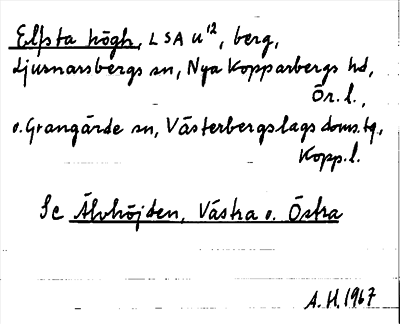 Elfsta högh, LSA U¹², berg,
Ljusnarsbergs sn, Nya Kopparbergs hd,
Ör. l.,
o. Grangärde sn, Västerbergslags doms. tg,
Kopp. l.
Se Älvhöjden, Västra o. Östra
A. H. 1967